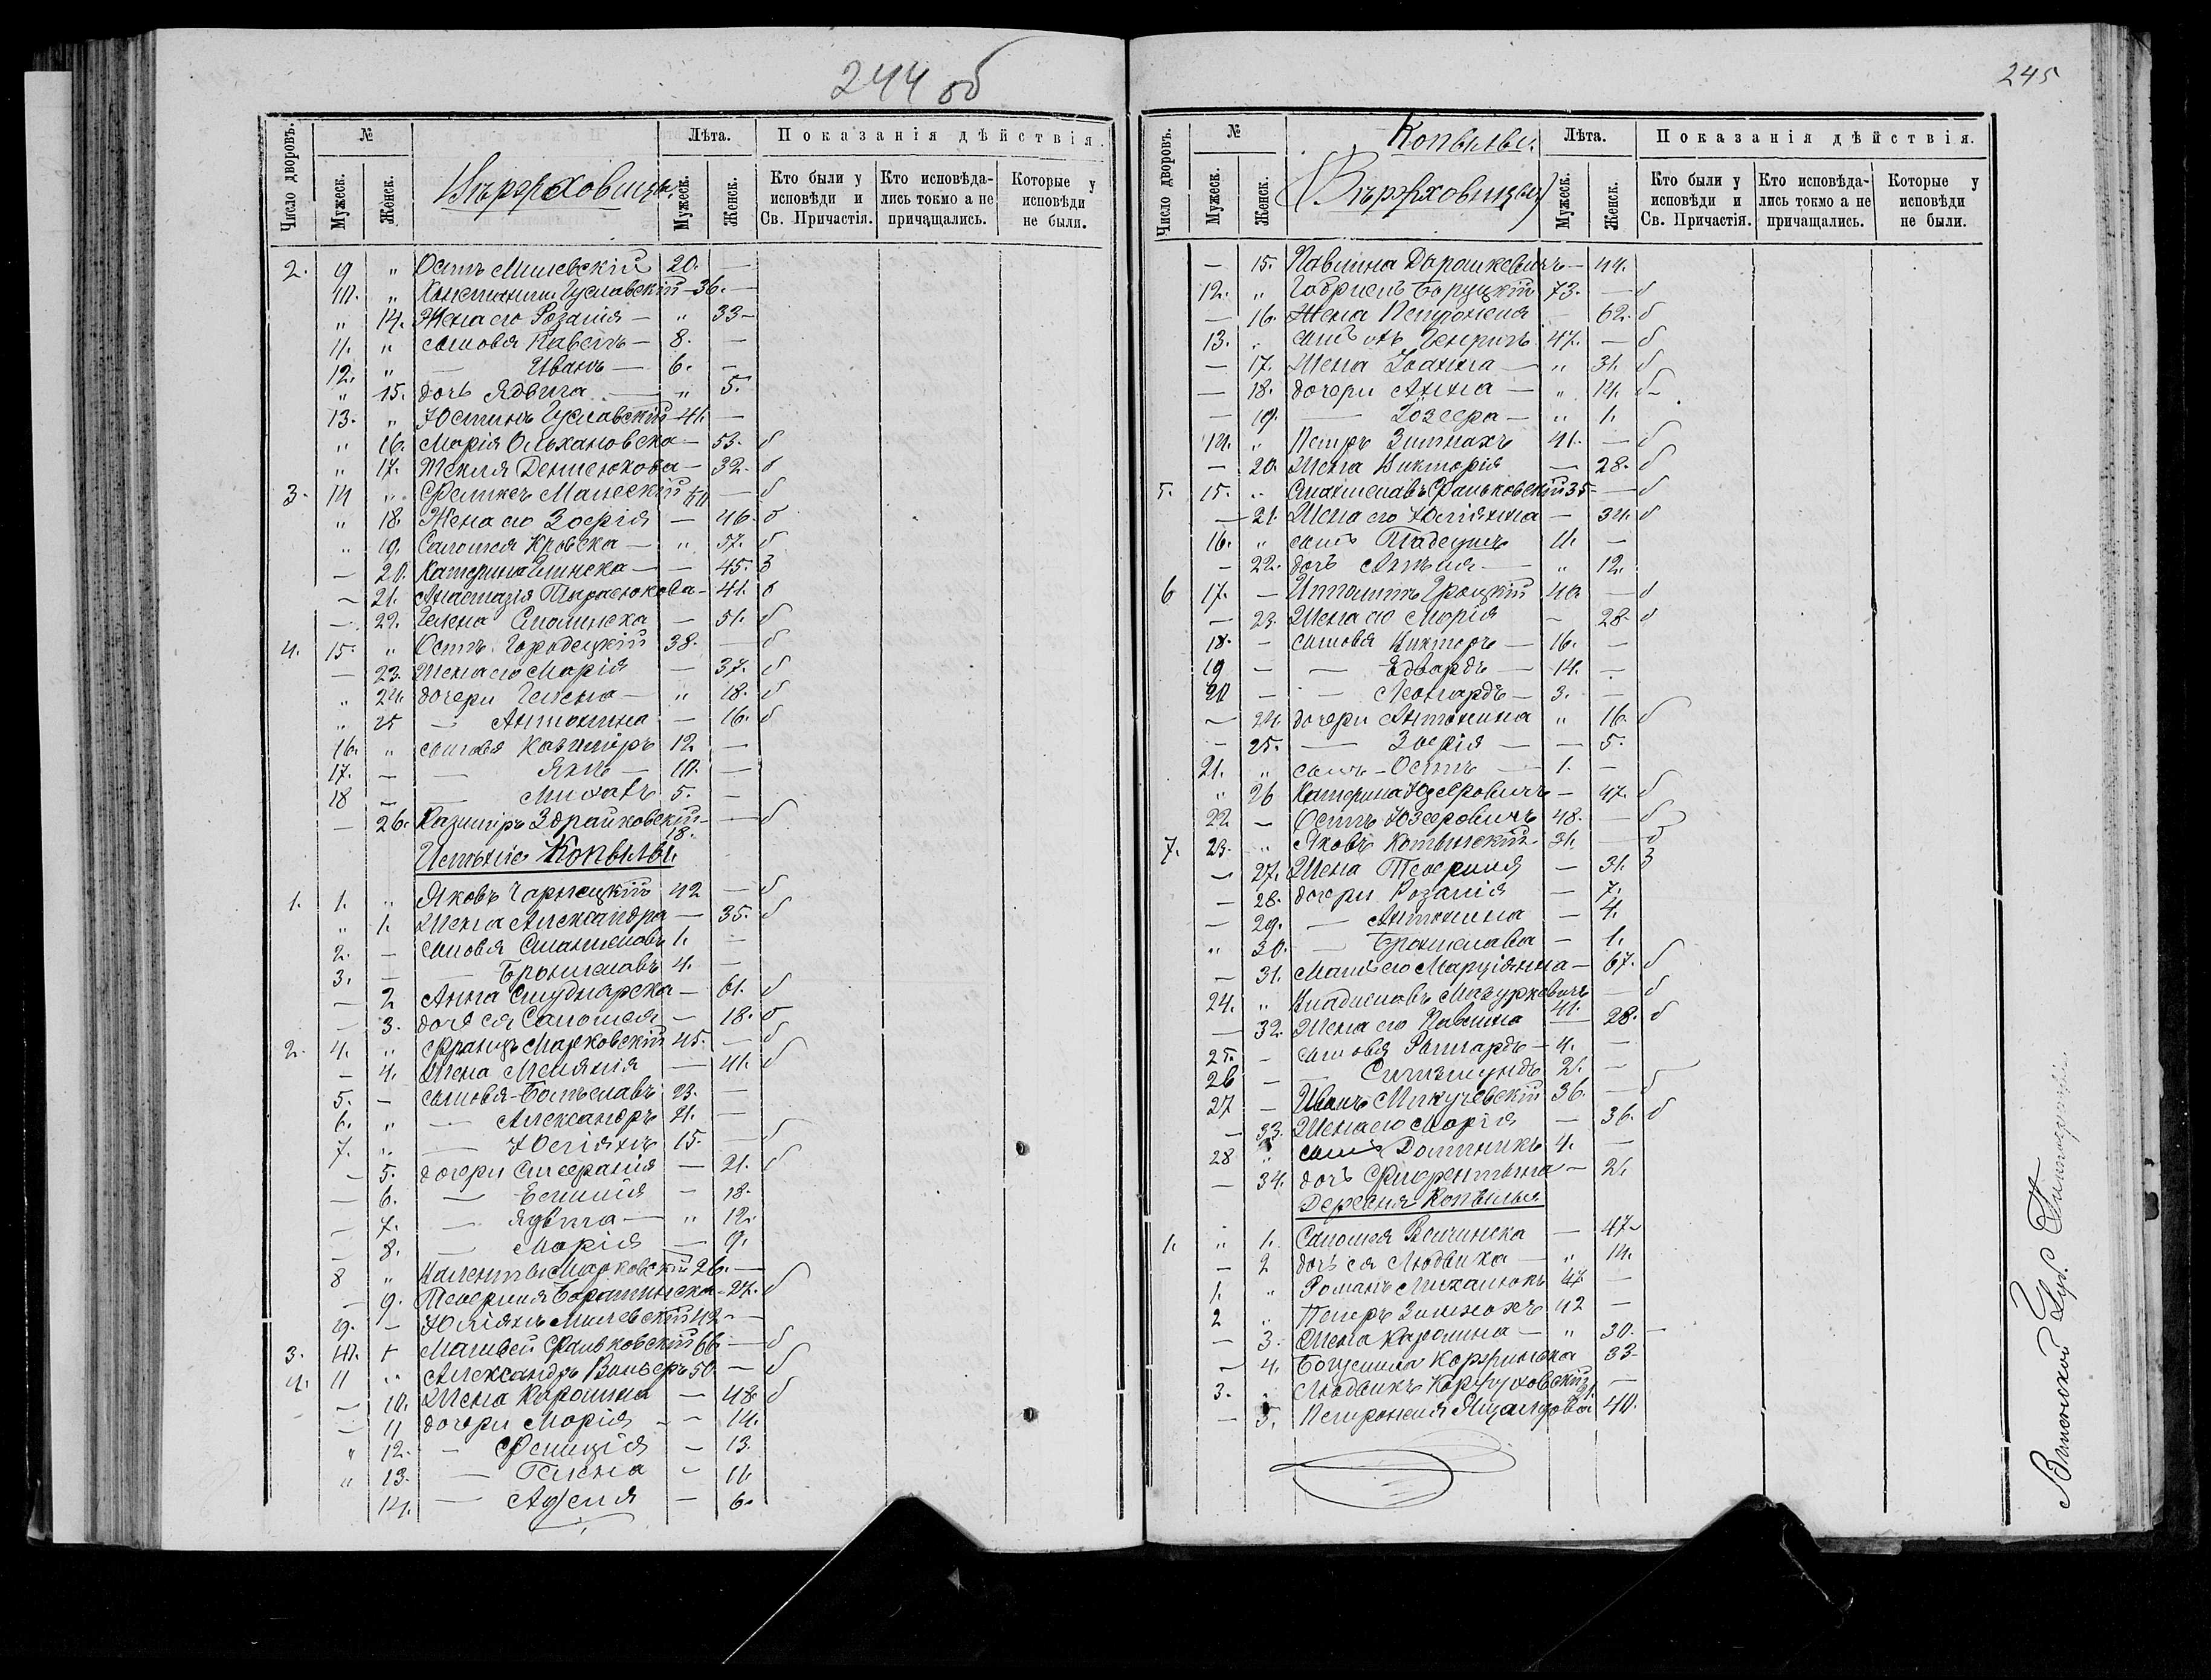 244 об
Число дворовъ.
№
Лѣта.
Показанія дѣйствія.
Мужеск.
Женск.
Мужеск.
Женск.
Кто были у исповѣди и Св. Причастія.
Кто исповѣдались токмо а не причащались.
Которые у исповѣди не были.
2. 9 " Осипъ Милевскій 20. —
10. " Константин Гуславскій 36. —
" 14. Жена его Розалія — " 33 —
11. " сыновя Павелъ — 8. —
12. " — Иванъ — 6. —
" 15. дочь Ядвига — " 5.
13. " Юстинъ Гуславскій 41. —
" 16. Марія Ольхановска — 53. б
" 17. Текля Денисюкова — 32. б
3. 14 " Феликсъ — б
" 18. Жена его Зофія — 46. б
" 19. Саломея — " 57. б
— 20. Катерина — — 45. 3
— 21. Анастазія Тарасюкова — 41. б
— 22. Гелена — 51. б
4. 15. " Осипъ Городецкій 38. — б
— 23. Жена его Марія — 37. б
" 24. дочери Гелена — " 18. б
" 25 — Антонина — 16. б
16. " сыновя Казимиръ 12 —
17. — — Янъ — 10. —
18 — — Михалъ 5. —
— 26. Казимиръ — б
18.
Имѣніе Копылы.
1. 1. " Яковъ Чарнецкій 42 — б
" 1. Жена Александра — 35. б
2. — сыновя Станиславъ 1. —
3. — — Брониславъ 4. —
— 2 Анна Студнарска — 61. б
— 3. дочь ея Саломея — 18. б
2. 4. " Францъ Марковскій 45. — б
— 4. Жена Меланія — 41. б
5. — сыновя Болеславъ 23. —
6. " — Александръ 21. —
7. " — Юліянъ 15. — б
— 5. дочери — 21. б
— 6. — Емилія — 18.
— 7. — Ядвига — " 12.
— 8. — Марія — 9.
8 " Валенты Марковскій 26. —
— 9. Теофиля — 27. б
9. — Юліянъ Милевскій 42 —
3. 10. + Матвей Фальковскій 66 — б
4. 11 " Александръ 50 — б
— 10. Жена Каролина — 48. б
— 11 дочери Марія — — 14.
" 12. — Фелиція — 13.
" 13. — Гелена — 11.
14. — Аделя — 6.
245
Число дворовъ.
№
Копылы.
Лѣта.
Показанія дѣйствія.
Мужеск.
Женск.
Мужеск.
Женск.
Кто были у исповѣди и Св. Причастія.
Кто исповѣдались токмо а не причащались.
Которые у исповѣди не были.
— 15. Павлина Дорошкевичъ — 44.
12. " Габріелъ Боруцкій 73. — б
— 16. Жена Петронеля — 62. б
13. " сынъ ихъ Генрихъ 47. — б
— 17. Жена Іоанна — " 31. б
— 18. дочери Анна — " 14. б
— 19. — Юзефа — " 1.
14. " Петръ Зимнахъ 41. — б
— 20. Жена Викторія — 28. б
5. 15. " Станиславъ Фальковскій 35 — б
— 21. Жена его Юліянна — 34. б
16. " сынъ Тадеушъ 11. —
— 22. дочь — " 12.
6 17. — 40. — б
— 23. Жена его Марія — 28. б
18. — сыновя Викторъ — 16. —
19 — — Едвардъ — 14. —
20 — — Леонардъ — 3. —
— 24. дочери Антонина " 16. б
— 25. — Зофія — — 5.
21. " сынъ — Осипъ — 1. —
" 26 Катерина Юзефовичъ — 47. б
22. — Осипъ Юзефовичъ 48. — б
7. 23. " Яковъ 31. — б
— 27. Жена Теофиля — 31. 3
— 28. дочери Розалія — 7.
— 29. — Антонина — 4.
" 30. — Бронислава — 1.
— 31. Мать его Марціянна — 67. б
24. " Владиславъ Мазуркевичъ — б
41.
— 32. Жена его Павлина — 28. б
25. — сыновя — 4. —
26 — — 2. —
27 — Иванъ Микулевскій 36. — б
— 33. Жена его Марія — 36. б
28 " сынъ Доминикъ 4. —
— 34. дочь Флорентына — 2.
Деревня Копылы
1. " 1. Саломея — 47.
— 2 дочь ея Людвика — " 14.
1. " Романъ Михалюкъ 47 —
2 " Петръ Зимнохъ 42 —
— 3. Жена Каролина — " 30. —
— 4. 33.
3. " Людвикъ —
— 5. Петронеля 40.